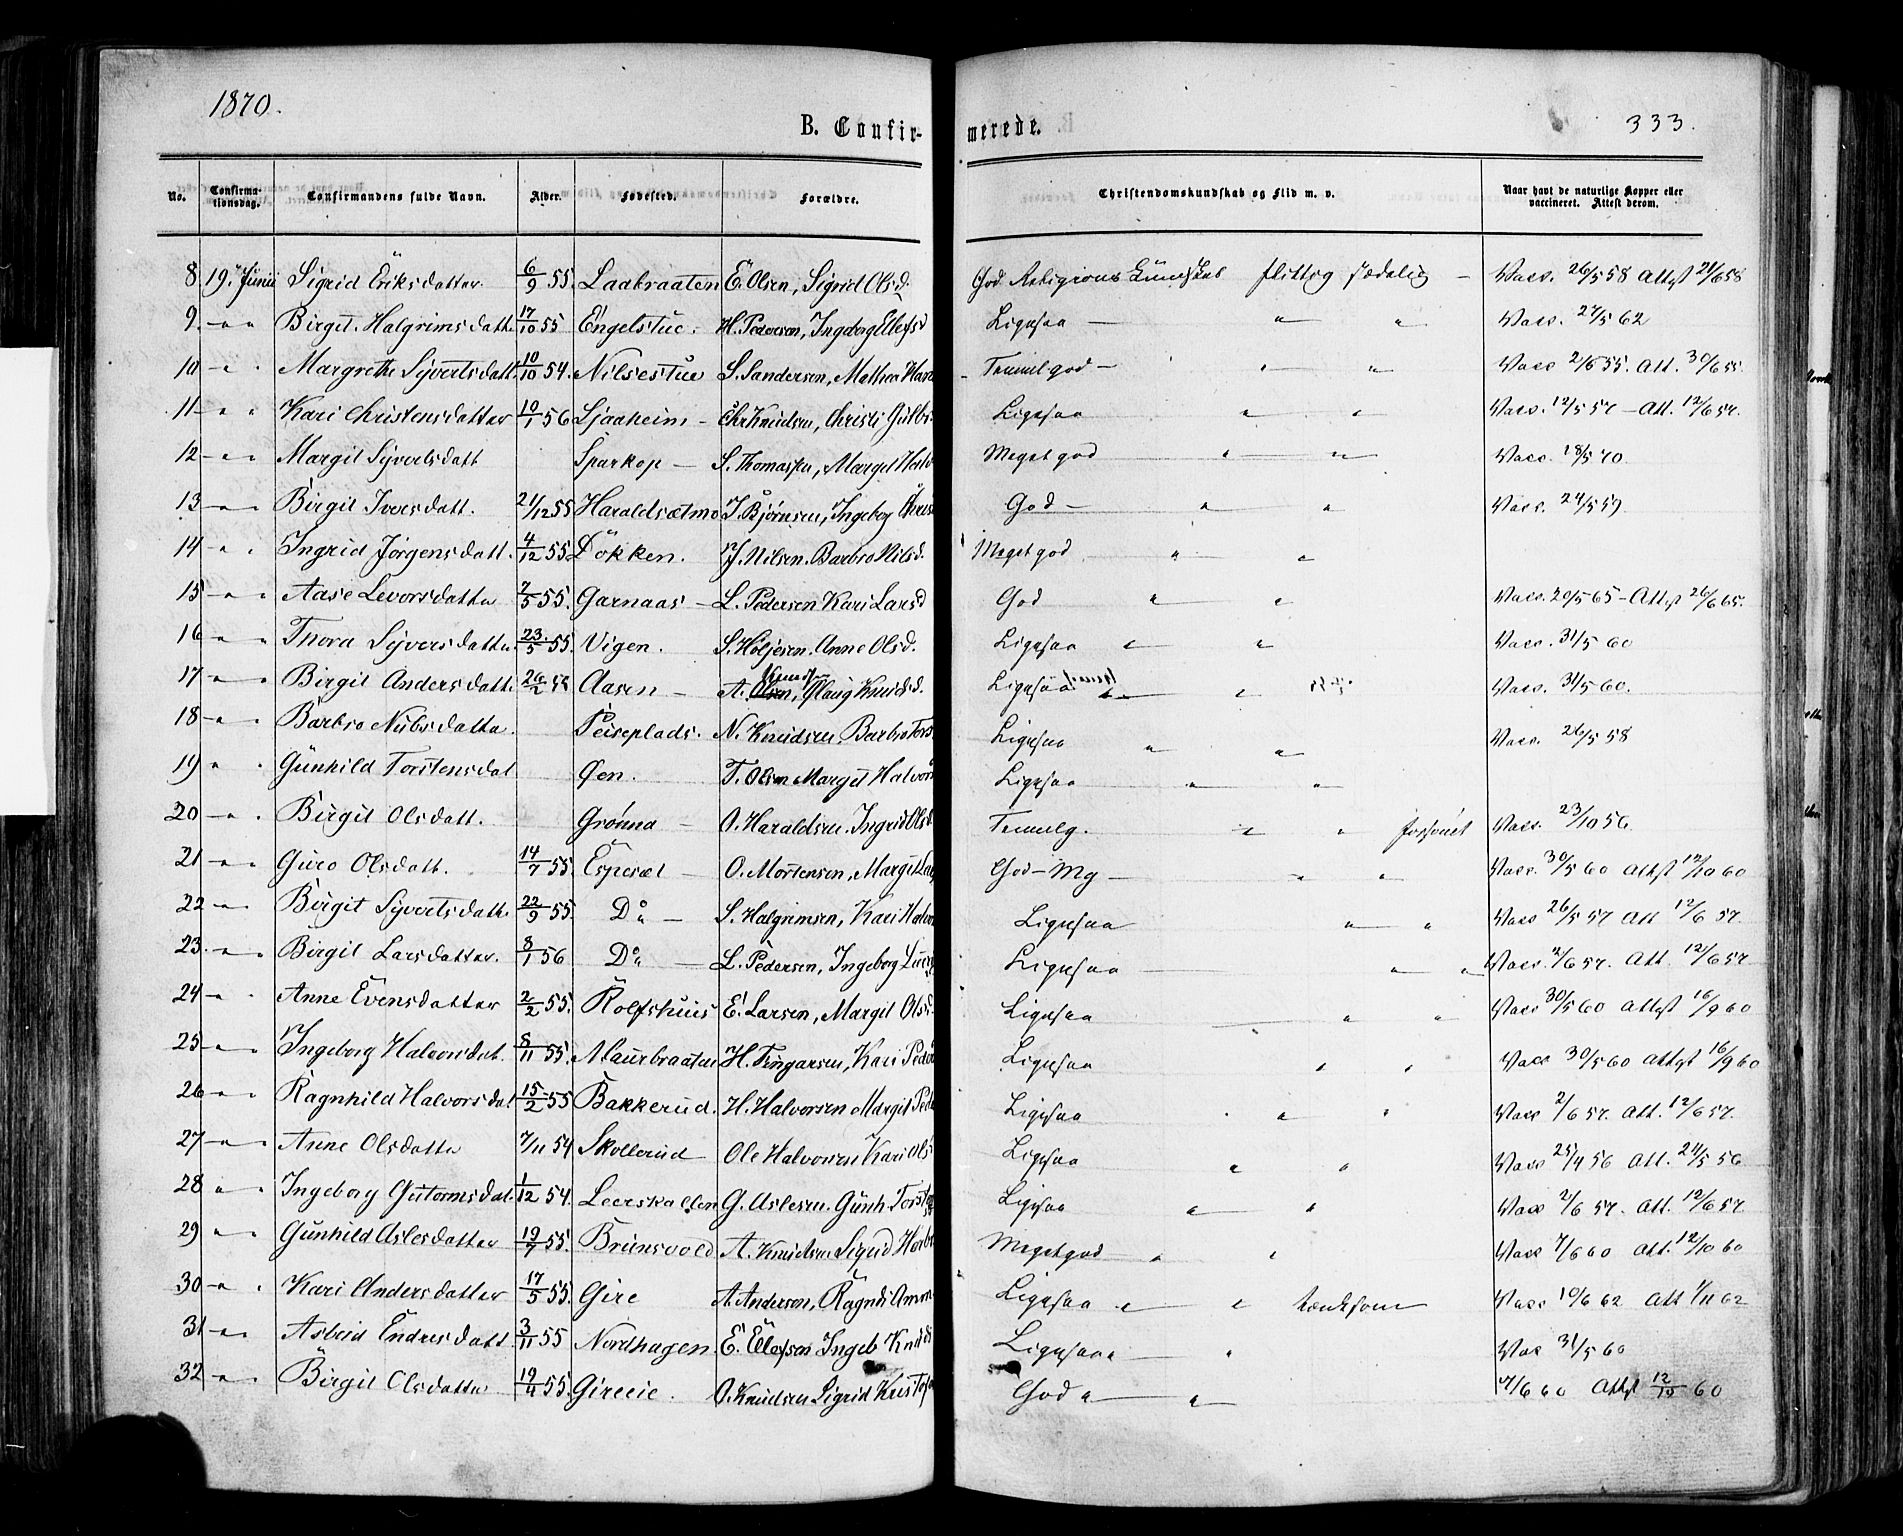 1870.
B. Confir-
merede.
333.
No. Confirma-tionsdag. Confirmandens fulde Navn. Alder. Fødested. Forældre. Christendomskundskab og Flid m. v. Naar havt de naturlige Kopper eller vaccineret. Attest derom.
8 19. Junii Sigrid Eriksdatter. 6/9 55 Laakraaten E. Olsen, Sigrid Olsd. God Religions Kundskab flittig sædelig – Vacc. 26/5 58 Attest 21/6 58
9. – " " Birgit Halgrimsdatt. 17/10 55 Engelstue. H. Pedersen, Ingeborg Ellefsd Ligesaa – " " Vacc. 27/5 62
10 – " " Margrethe Syvertsdatt. 10/10 54. Nilsestue S. Sandersen, Mathea Hans Temmel god – " " Vacc 2/6 55. Att. 30/6 55
11 – " " Kari Christensdatter 10/1 56 Sjaaheim – Chr Knudsen, Christi Gulbr. Ligesaa " " Vacc. 12/5 57 – Att. 12/6 57.
12 – " " Margit Syvertsdatt Sparkop – S. Thomasen, Marget Halv Meget god " " Vacc. 18/5 70.
13 – " Birgit Iversdatt. 21/12 55 Haraldsætmo I. Bjørnsen, Ingeborg Christ God – " " Vacc. 24/5 59.
14 – " " Ingrid Jørgensdatt. 4/12 55 Løkken. J. Nilsen. Barbro Nilsd. Meget god " "
15 – " " Aase Levorsdatter 7/5 55. Garnaas – L. Pedersen Kari Larsd God " " Vacc. 20/5 65 – Attest 26/6 65.
16 – " " Thora Syversdatter 23/5 55. Vigen. S. Holjesen. Anne Olsd. Ligesaa " " Vacc. 31/5 60
17 – " Birgit Andersdatt. 26/2 55 Aasen – A. Knuds., Glaug Knudsd. Ligesaa " " Vacc. 31/5 60.
18 – " " Barbro Nilsdatter. Peiseplads. N. Knudsen, Barbro Tors Ligesaa " " Vacc. 26/5 58
19 " " Gunhild Torstensdat Øen. T. Olsen Marget Halvors Ligesaa " "
20 – " " Birgit Olsdatt. Grønna – O. Haraldsen. Ingrid Olsd Temmelg. " " forsømt Vacc. 23/10 56
21 – " " Guro Olsdatt. 14/7 55. Espesæt – O. Mortensen, Marget Lars God – Mg – " " Vacc. 30/5 60 Attest 12/10 60
22 – " Birgit Syvertsdatt. 22/9 55. Do – S. Halgrimsen, Kari Halvor Ligesaa " " Vacc 26/5 57 Att 12/6 57.
23. – " Birgit Larsdatter. 8/1 56 Do – L. Pedersen, Ingeborg Ligesaa – " " Vacc. 2/6 57. Att. 12/6 57
24 – " " Anne Evensdatter 2/2 55. Rolfshuus E. Larsen, Margit Olsd. Ligesaa " " Vacc 30/5 60 Attest 16/9 60
25 – " Ingeborg Halvorsdat. 8/11 55. Maurbraaten H. Fingarsen, Kari Peder Ligesaa " " Vacc 30/5 60 Attest 16/9 60
26 – " Ragnhild Halvorsdat 15/2 55 Bakkerud. H. Halvorsen Margit Ped Ligesaa " " Vacc 2/6 57. Att. 12/6 57.
27 – " Anne Olsdatter 7/11 54 Skollerud Ole Halvorsen Kari Ols Ligesaa " " Vacc 25/4 56 Att. 24/5 56
28 " " Ingeborg Gutormsdat. 1/12 54. Leerskallen G. Aslesen. Gunh. Torst Ligesaa " " Vacc 2/6 57. Att. 12/6 57
29 " Gunhild Aslesdatter 19/7 55. Brunsvold A. Knudsen Sigrid Herbr Meget god – " " Vacc 7/6 60 Att. 12/10 60
30 – " " Kari Andersdatter 17/5 55. Gire A. Anderson, Ragnh. Amun Ligesaa " " tænksom Vacc 10/6 62 Att 1/11 62
31 – " Asbrid Endresdatt. 3/11 55 Nordhagen. E. Ellefsen Ingeb Knud Ligesaa – " Vac 31/5 60
32 – " Birgit Olsdatter 19/4 55. Gireeie. O. Knudsen Sigrid Kristof God " – " 7/6 60 Attest 12/10 60